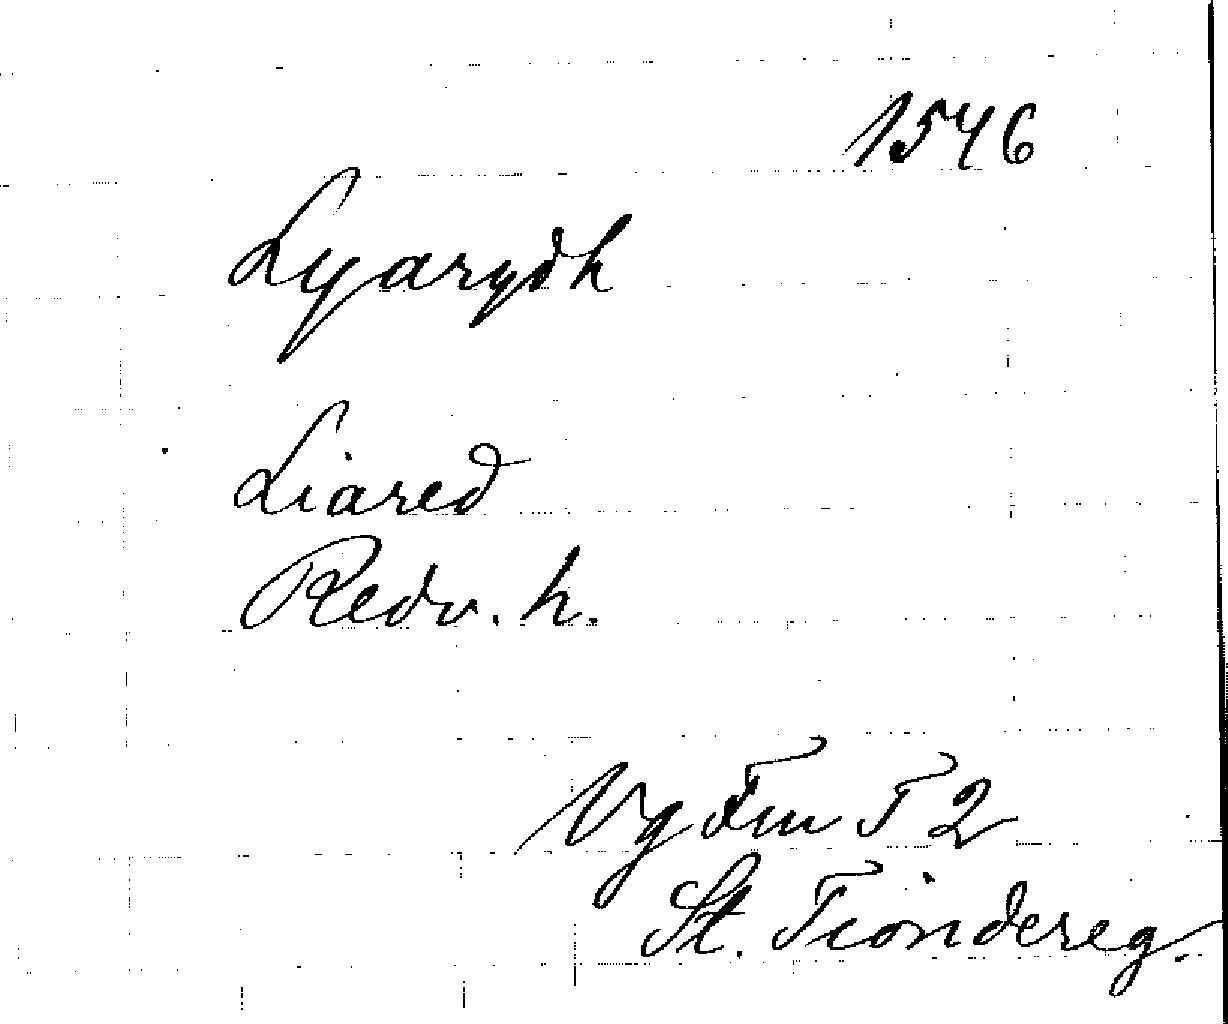 1546
Lyarydh
Liared
Redv. h.
Vg Fm T 2
St. Tiondereg.